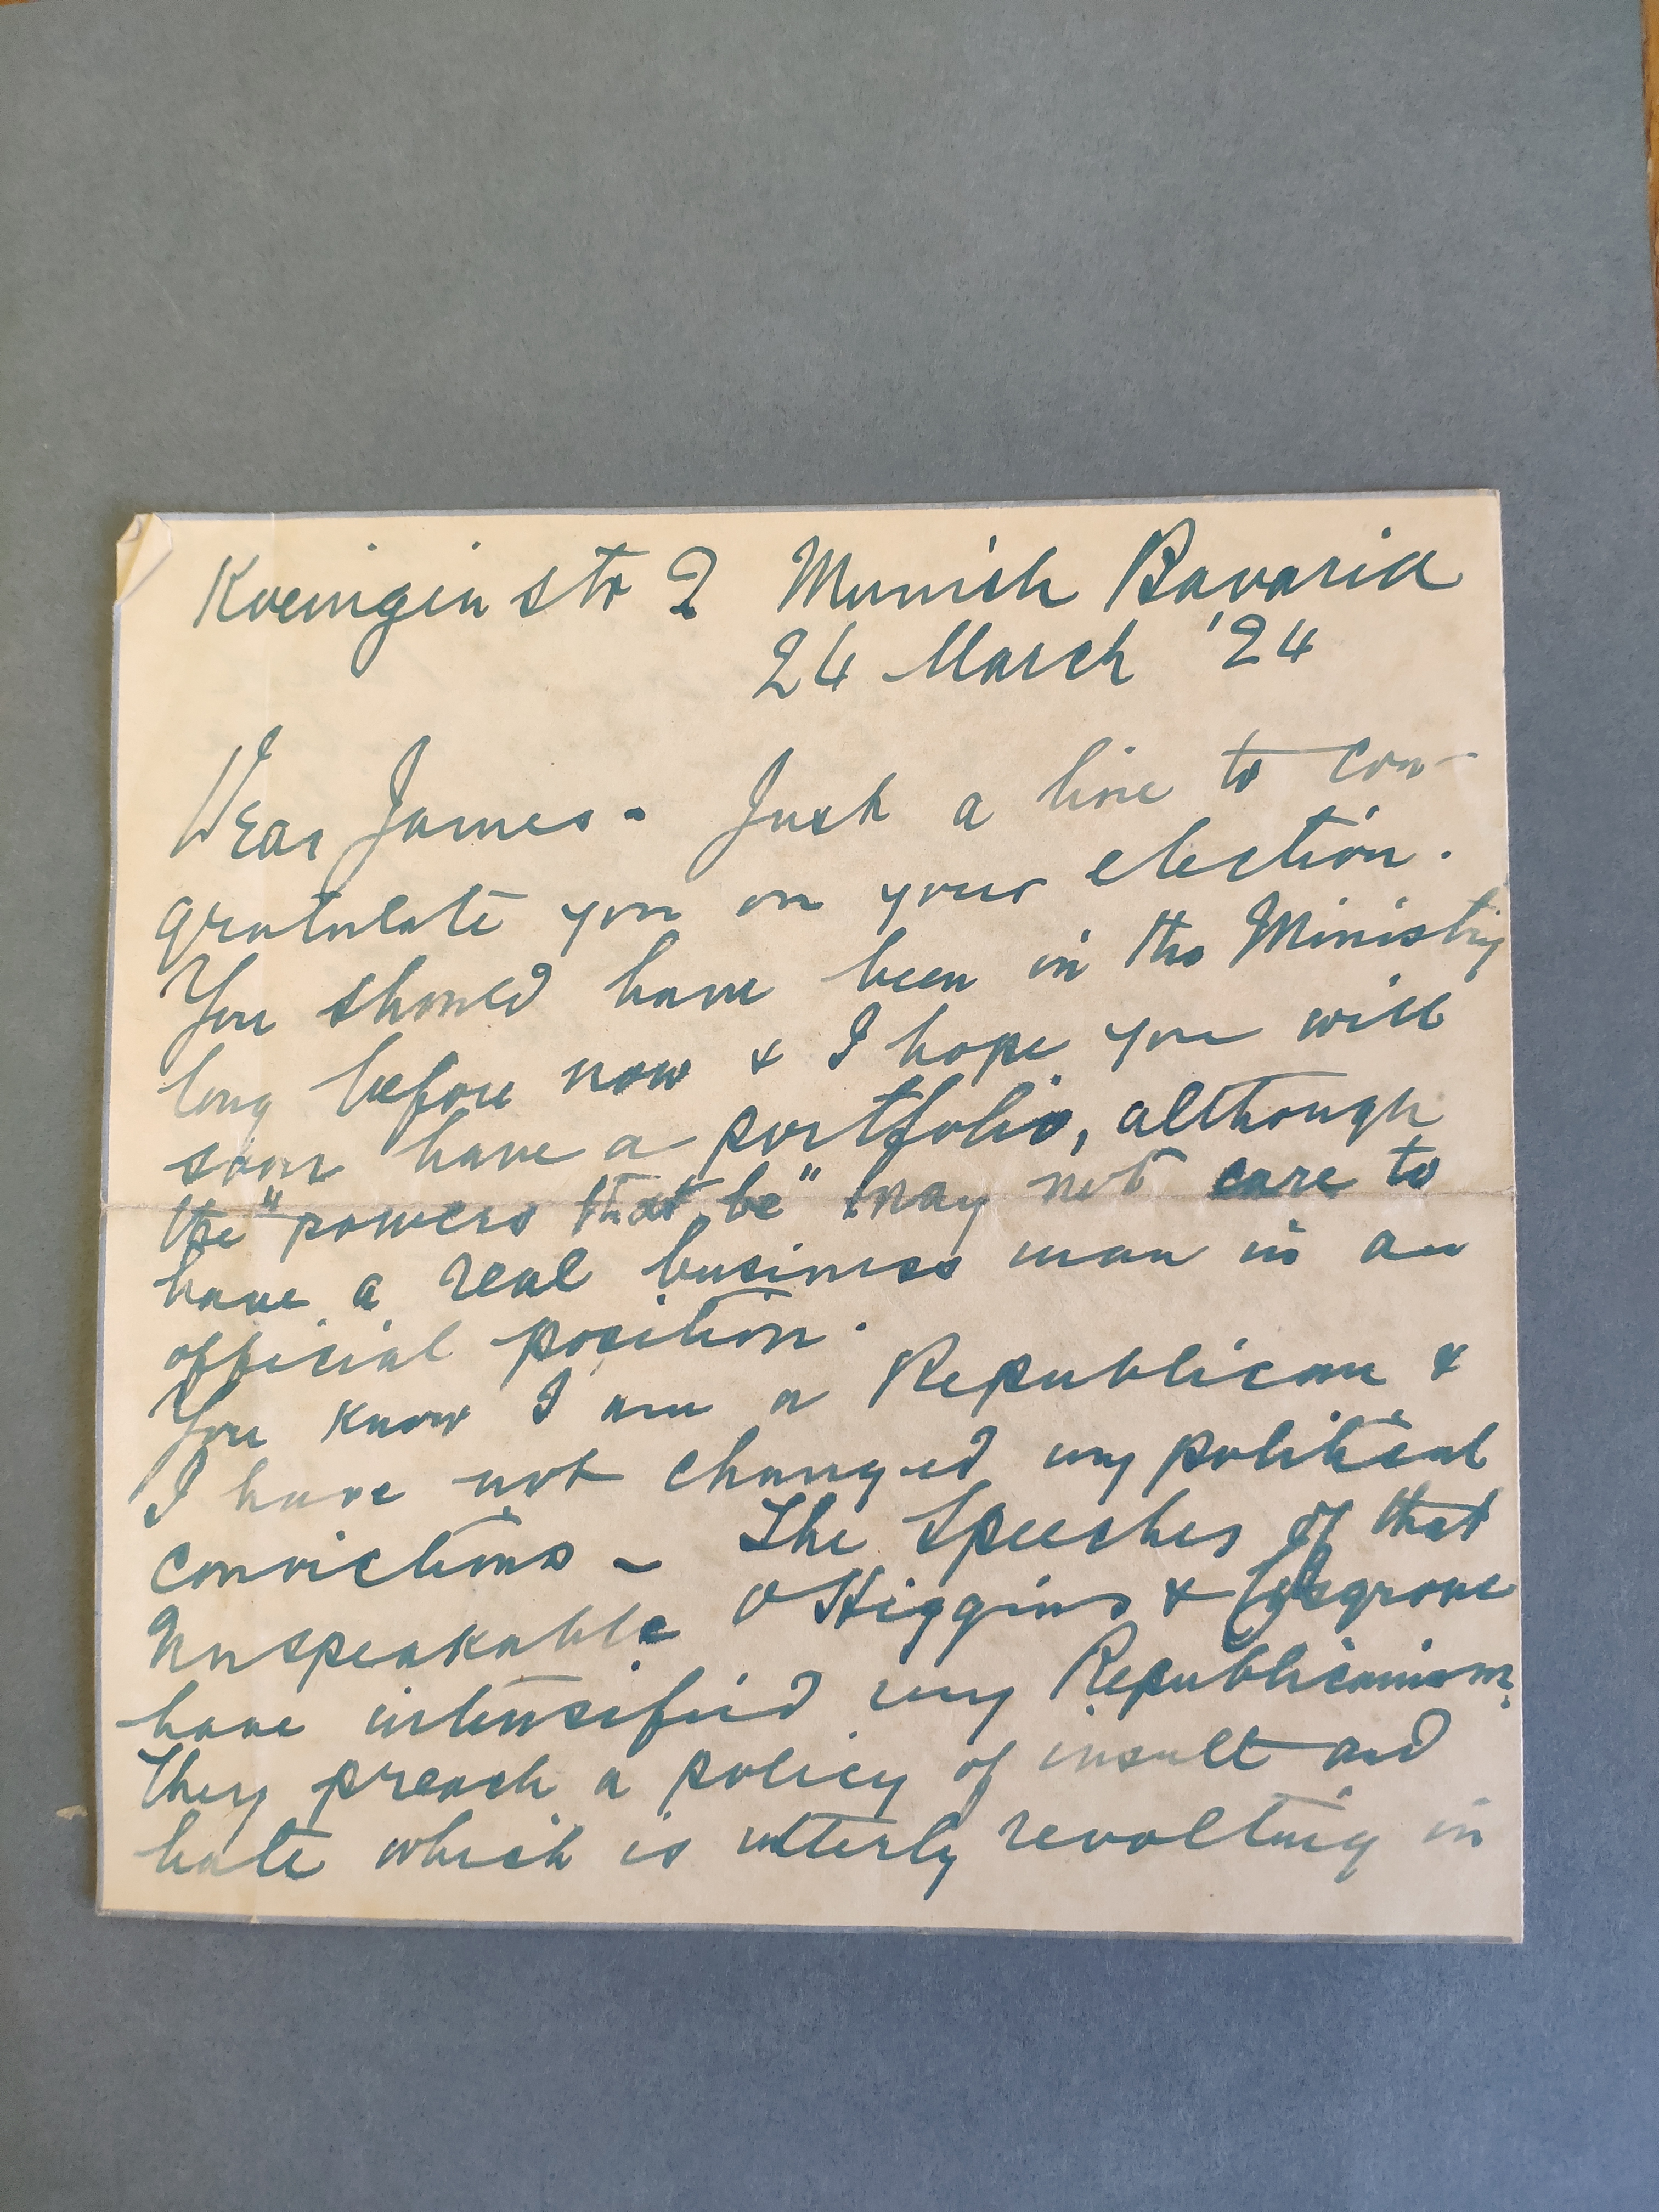 Koeniginstr 2 Munich Bavaria
24 March '24
Dear James - Just a line to con-
gratulate you on your election.
You should have been in the Ministry
long before now & I hope you will
soon have a portfolio, although
the "powers that be" may not care to
have a real business man in an
official position.
You know I am a Republican &
I have not changed my political
convictions - The speeches of that
unspeakable O'Higgins & Cosgrove
have intensified my Republicanism.
They preach a policy of insult and
hate which is utterly revolting in